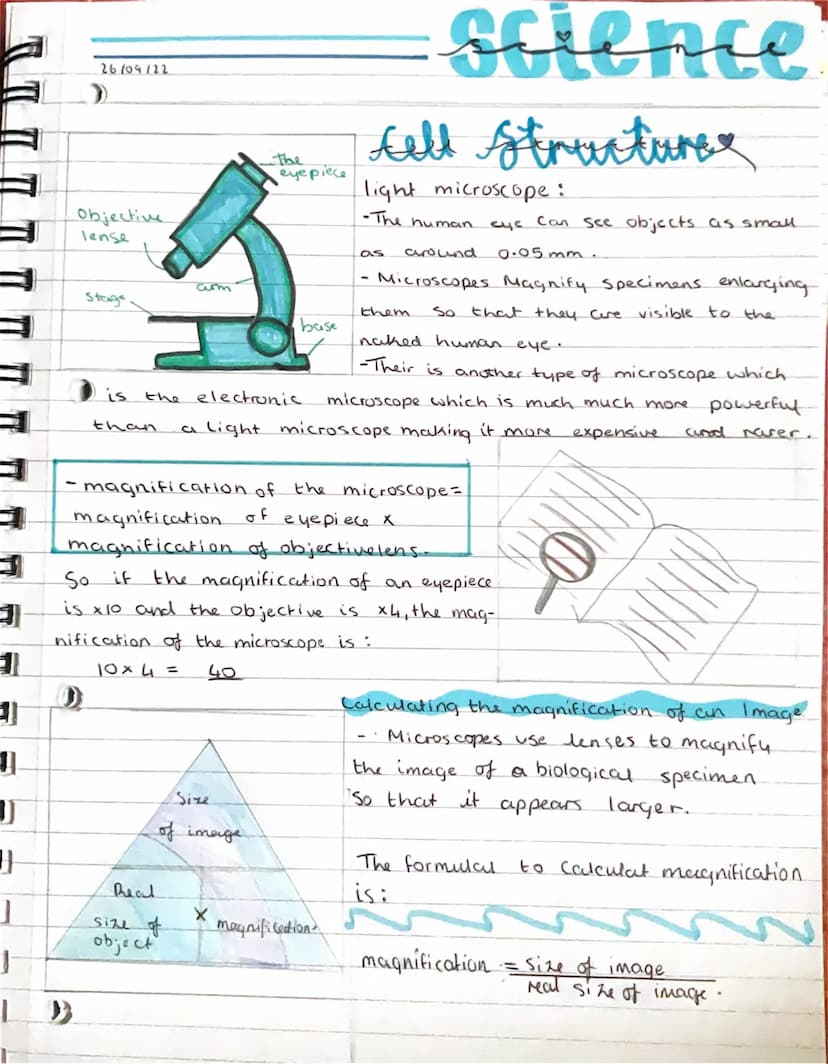 science
science
26/09/22
Cell Structure
The
eyepiece
Objective
lense
arm
stage
base
light microscope:
-The human eye can see objects as small
as around 0.05mm.
- Microscopes Magnify specimens enlarging
them so that they are visible to the
naked human eye.
-Their is another type of microscope which
is the electronic microscope which is much much more powerful
than a light microscope making it more expensive and rarer.
- magnification of the microscope=
magnification of eyepiece x
magnification of objectivelens.
So if the magnification of an eyepiece
is x10 and the objective is x4, the mag-
nification of the microscope is:
10 x 4 = 40
Calculating the magnification of an Image
- Microscopes use lenses to magnify
the image of a biological specimen
So that it appears larger.
The formulal to calculat magnification
is:
magnification = size of image
real size of image.
Size
of image
Real
size of
object
x magnification